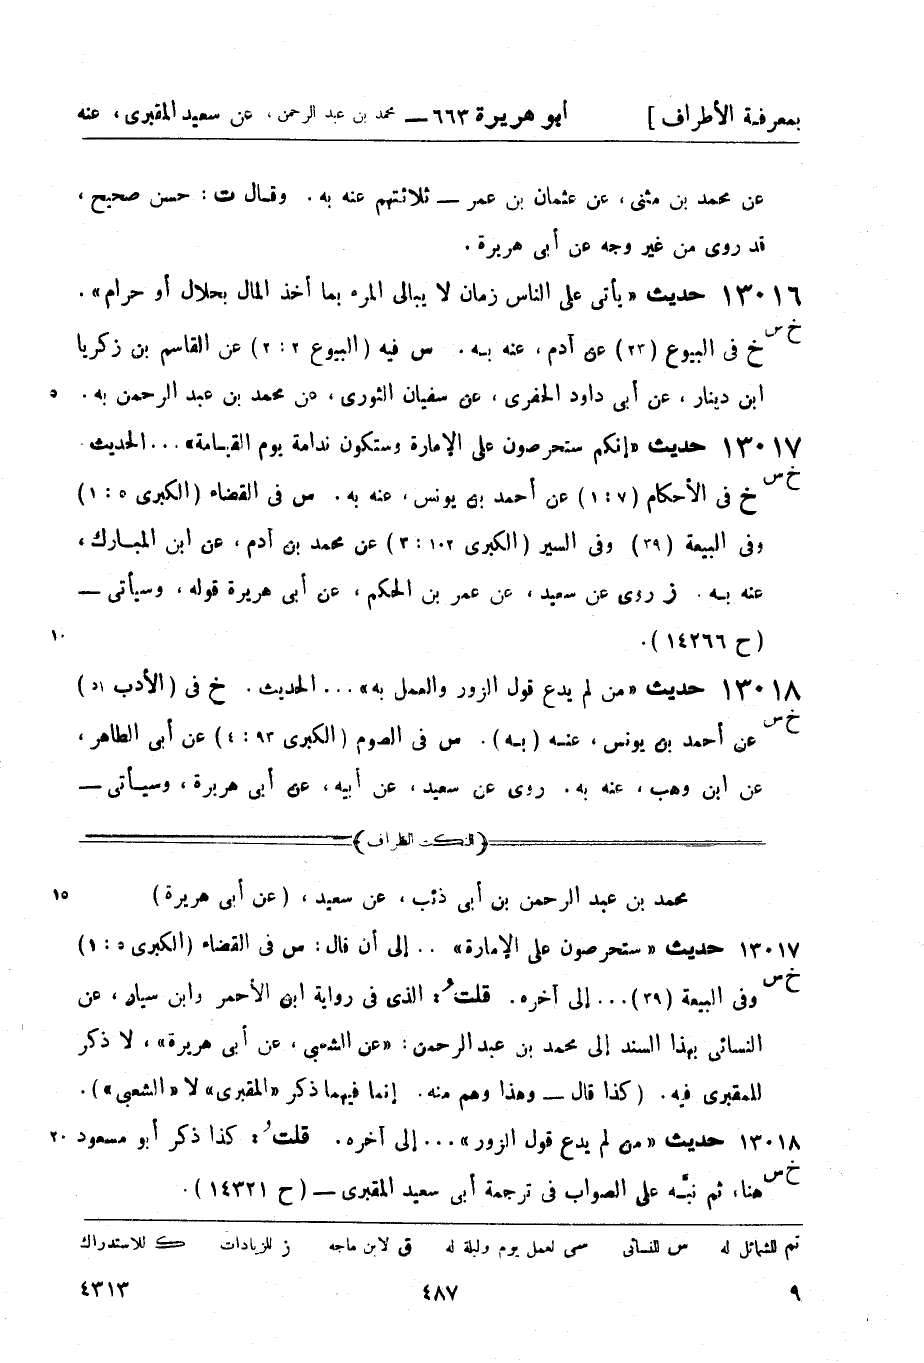 بمعرفة الأطراف ] أبو هريرة ٦٦٣ — محمد بن عبد الرحمن، عن سعيد المقبرى، عنه
عن محمد بن مثنى، عن عثمان بن عمر — ثلاثتهم عنه به. وقال ت: حسن صحيح،
قد روى من غير وجه عن أبى هريرة.
١٣٠١٦ حديث «يأتى على الناس زمان لا يبالى المرء بما أخذ المال بحلال أو حرام».
خ س
خ فى البيوع (٢٣) عن آدم، عنه به. س فيه (البيوع ٢ : ٢) عن القاسم بن زكريا
ابن دينار، عن أبى داود الحفرى، عن سفيان الثورى، عن محمد بن عبد الرحمن به. ٥
١٣٠١٧ حديث «إنكم ستحرصون على الإمارة وستكون ندامة يوم القيامة»... الحديث.
خ س
خ فى الأحكام (٧ : ١) عن أحمد بن يونس، عنه به. س فى القضاء (الكبرى ٥ : ١)
وفى البيعة (٣٩) وفى السير (الكبرى ١٠٢ : ٣) عن محمد بن آدم، عن ابن المبارك،
عنه به. ز روى عن سعيد، عن عمر بن الحكم، عن أبى هريرة قوله، وسيأتى —
(ح ١٤٢٦٦). ١٠
١٣٠١٨ حديث «من لم يدع قول الزور والعمل به»... الحديث. خ فى (الأدب ٥١)
خ س
عن أحمد بن يونس، عنه (به). س فى الصوم (الكبرى ٩٣ : ٤) عن أبى الطاهر،
عن ابن وهب، عنه به. روى عن سعيد، عن أبيه، عن أبى هريرة، وسيأتى —
(النكت الظراف)
محمد بن عبد الرحمن بن أبى ذئب، عن سعيد، (عن أبى هريرة) ١٥
١٣٠١٧ حديث «ستحرصون على الإمارة» .. إلى أن قال: س فى القضاء (الكبرى ٥ : ١)
خ س
وفى البيعة (٣٩)... إلى آخره. قلتُ: الذى فى رواية ابن الأحمر وابن سيار، عن
النسائى بهذا السند إلى محمد بن عبد الرحمن: «عن الشعبى، عن أبى هريرة»، لا ذكر
للمقبرى فيه. (كذا قال — وهذا وهم منه. إنما فيهما ذكر «المقبرى» لا «الشعبى»).
١٣٠١٨ حديث «من لم يدع قول الزور»... إلى آخره. قلتُ: كذا ذكر أبو مسعود ٢٠
خ س
هنا، ثم نبَّه على الصواب فى ترجمة أبى سعيد المقبرى — (ح ١٤٣٢١).
تم للشمائل له س للنسائى سى لعمل يوم وليلة له ق لابن ماجه ز للزيادات ك للاستدراك
٩ ٤٨٧ ٤٣١٣